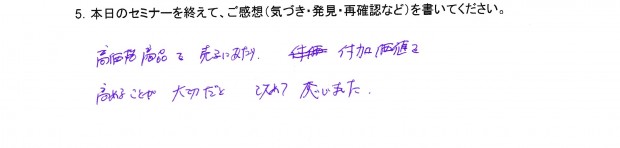 5. 本日のセミナーを終えて、ご感想（気づき・発見・再確認など）を書いてください。
高価格商品を売るにあたり、付加価値を
高めることが大切だと改めて感じました。